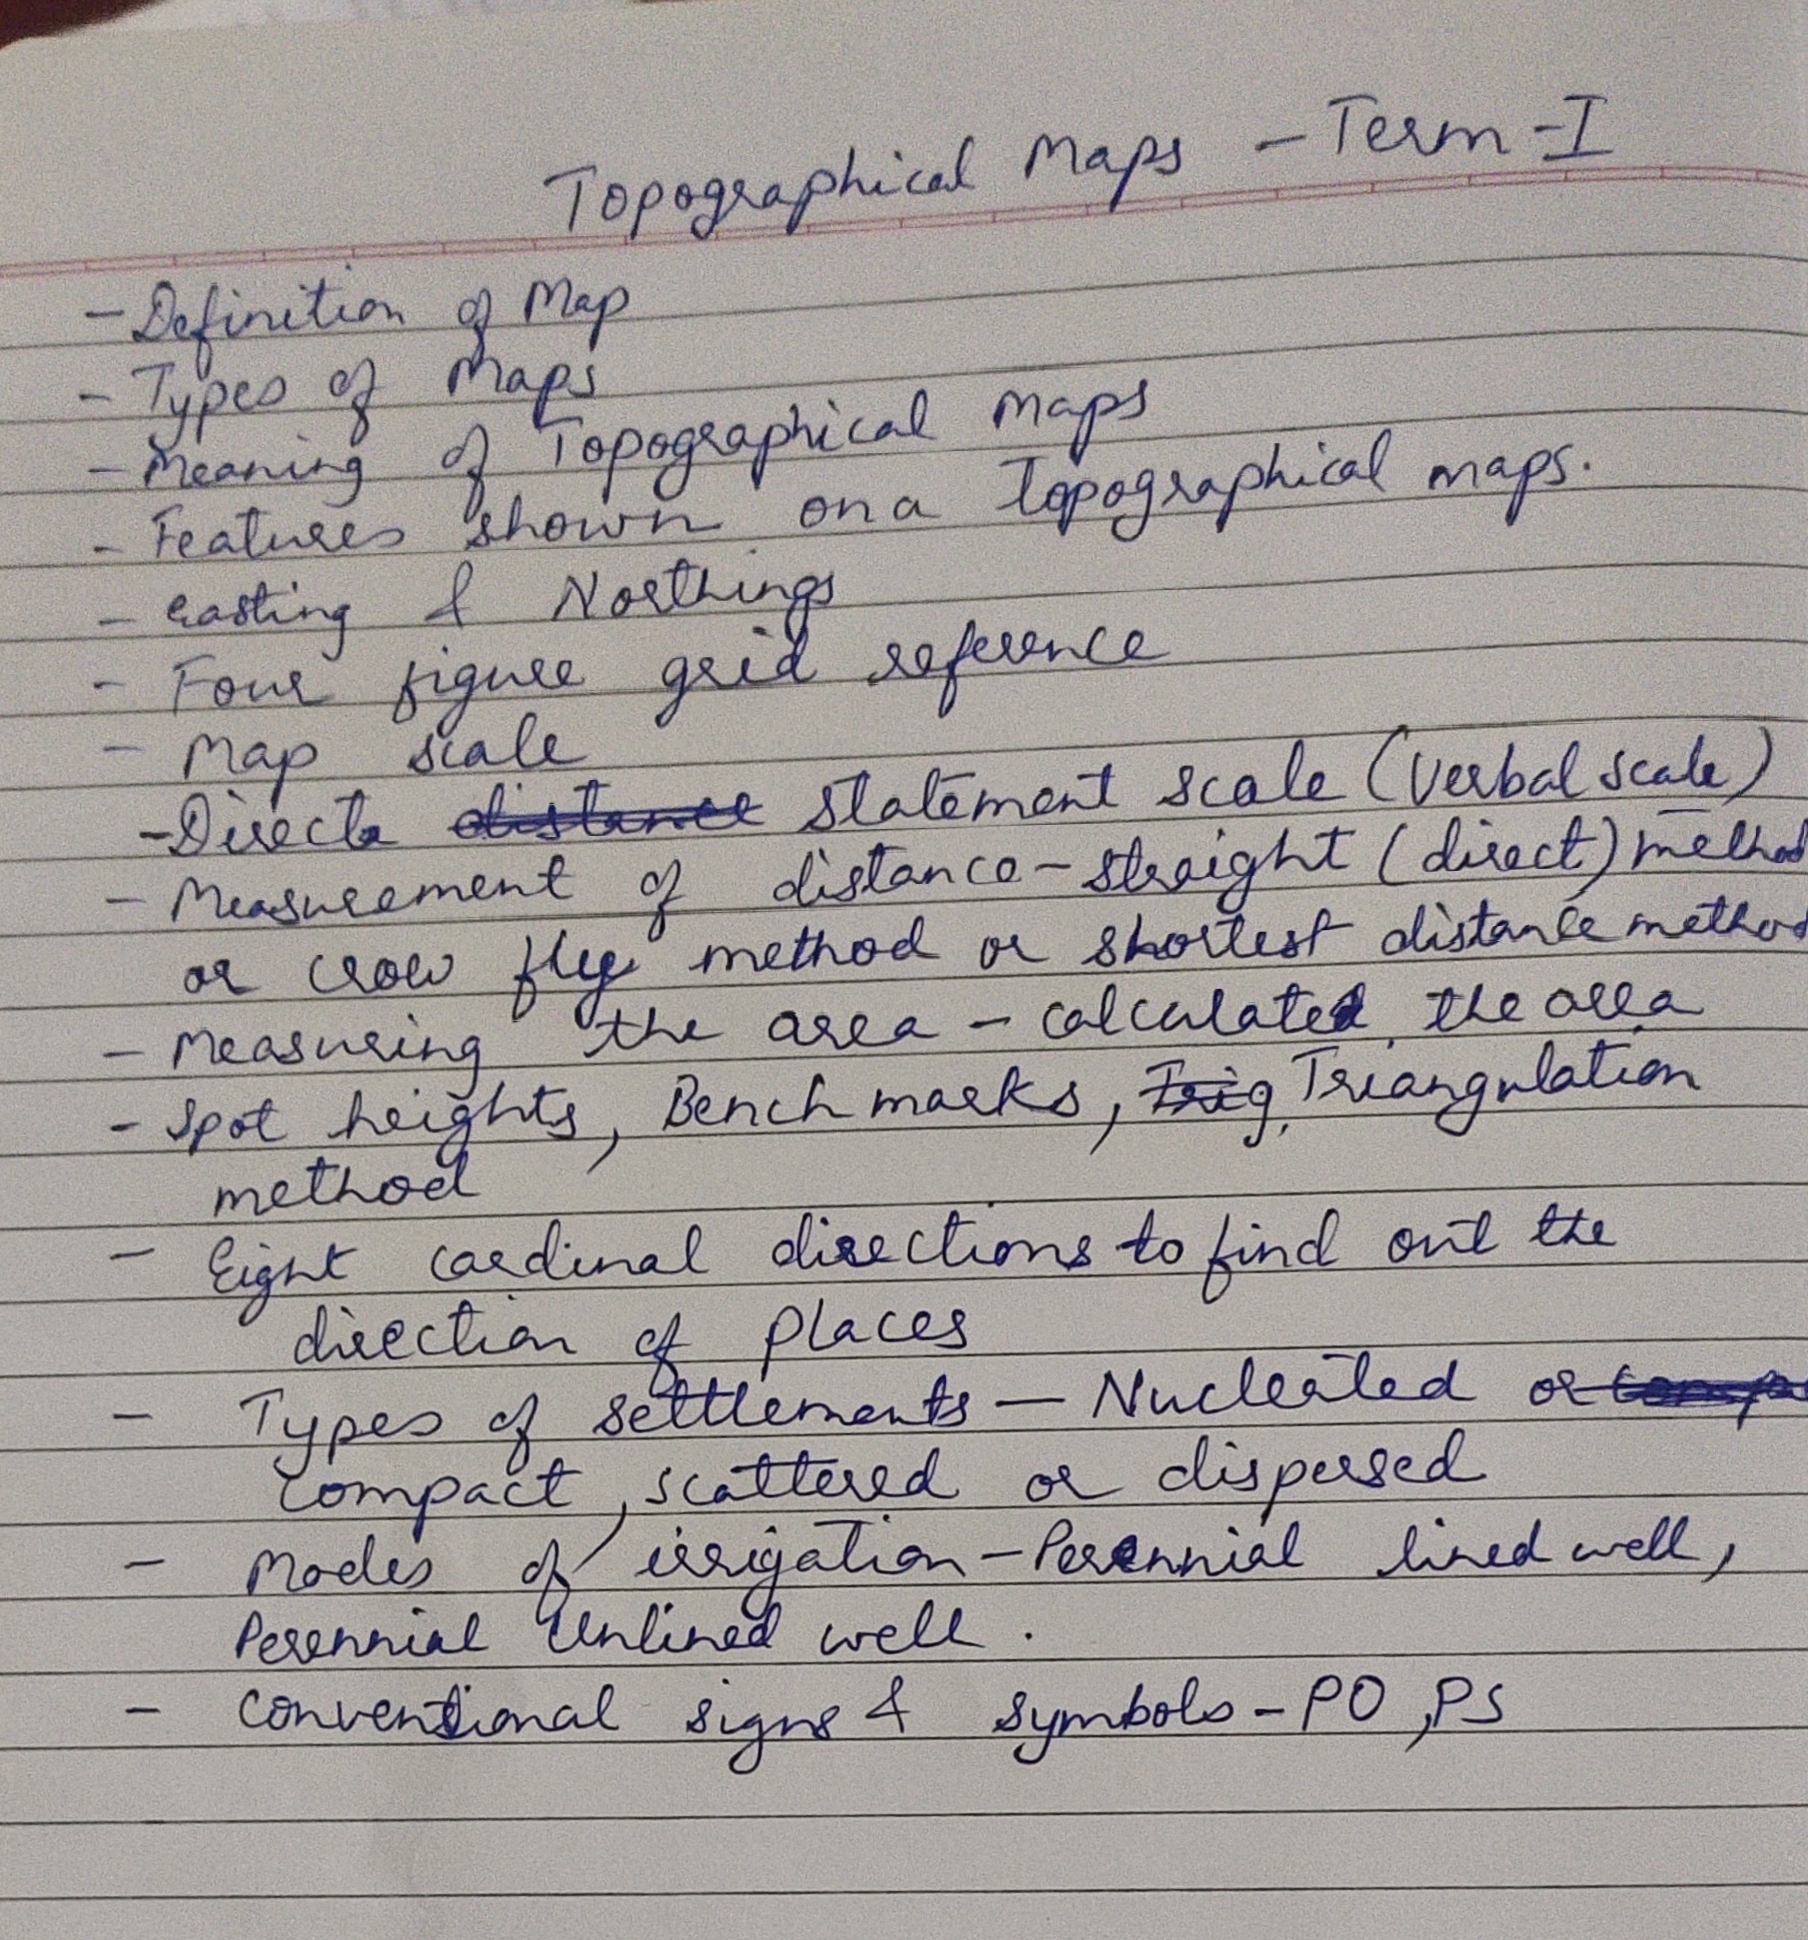 Topographical Maps - Term-I
- Definition of Map
- Types of Maps
- Meaning of Topographical Maps
- Features shown on a Topographical maps.
- easting & Northings
- Four figure grid reference
- Map scale
- Direct distance statement scale (verbal scale)
- Measurement of distance - straight (direct) method
or crow fly method or shortest distance method
- Measuring the area - calculated the area
- Spot heights, Bench marks, Trig, Triangulation
method
- Eight cardinal directions to find out the
direction of places
- Types of settlements - Nucleated or
compact, scattered or dispersed
- Modes of irrigation - Perennial lined well,
Perennial Unlined well.
- Conventional signs & symbols - PO, PS